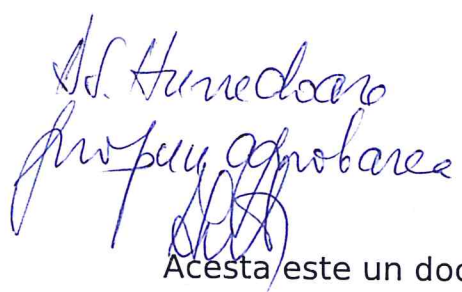 Hunedoara
propun aprobarea
Acesta este un doc